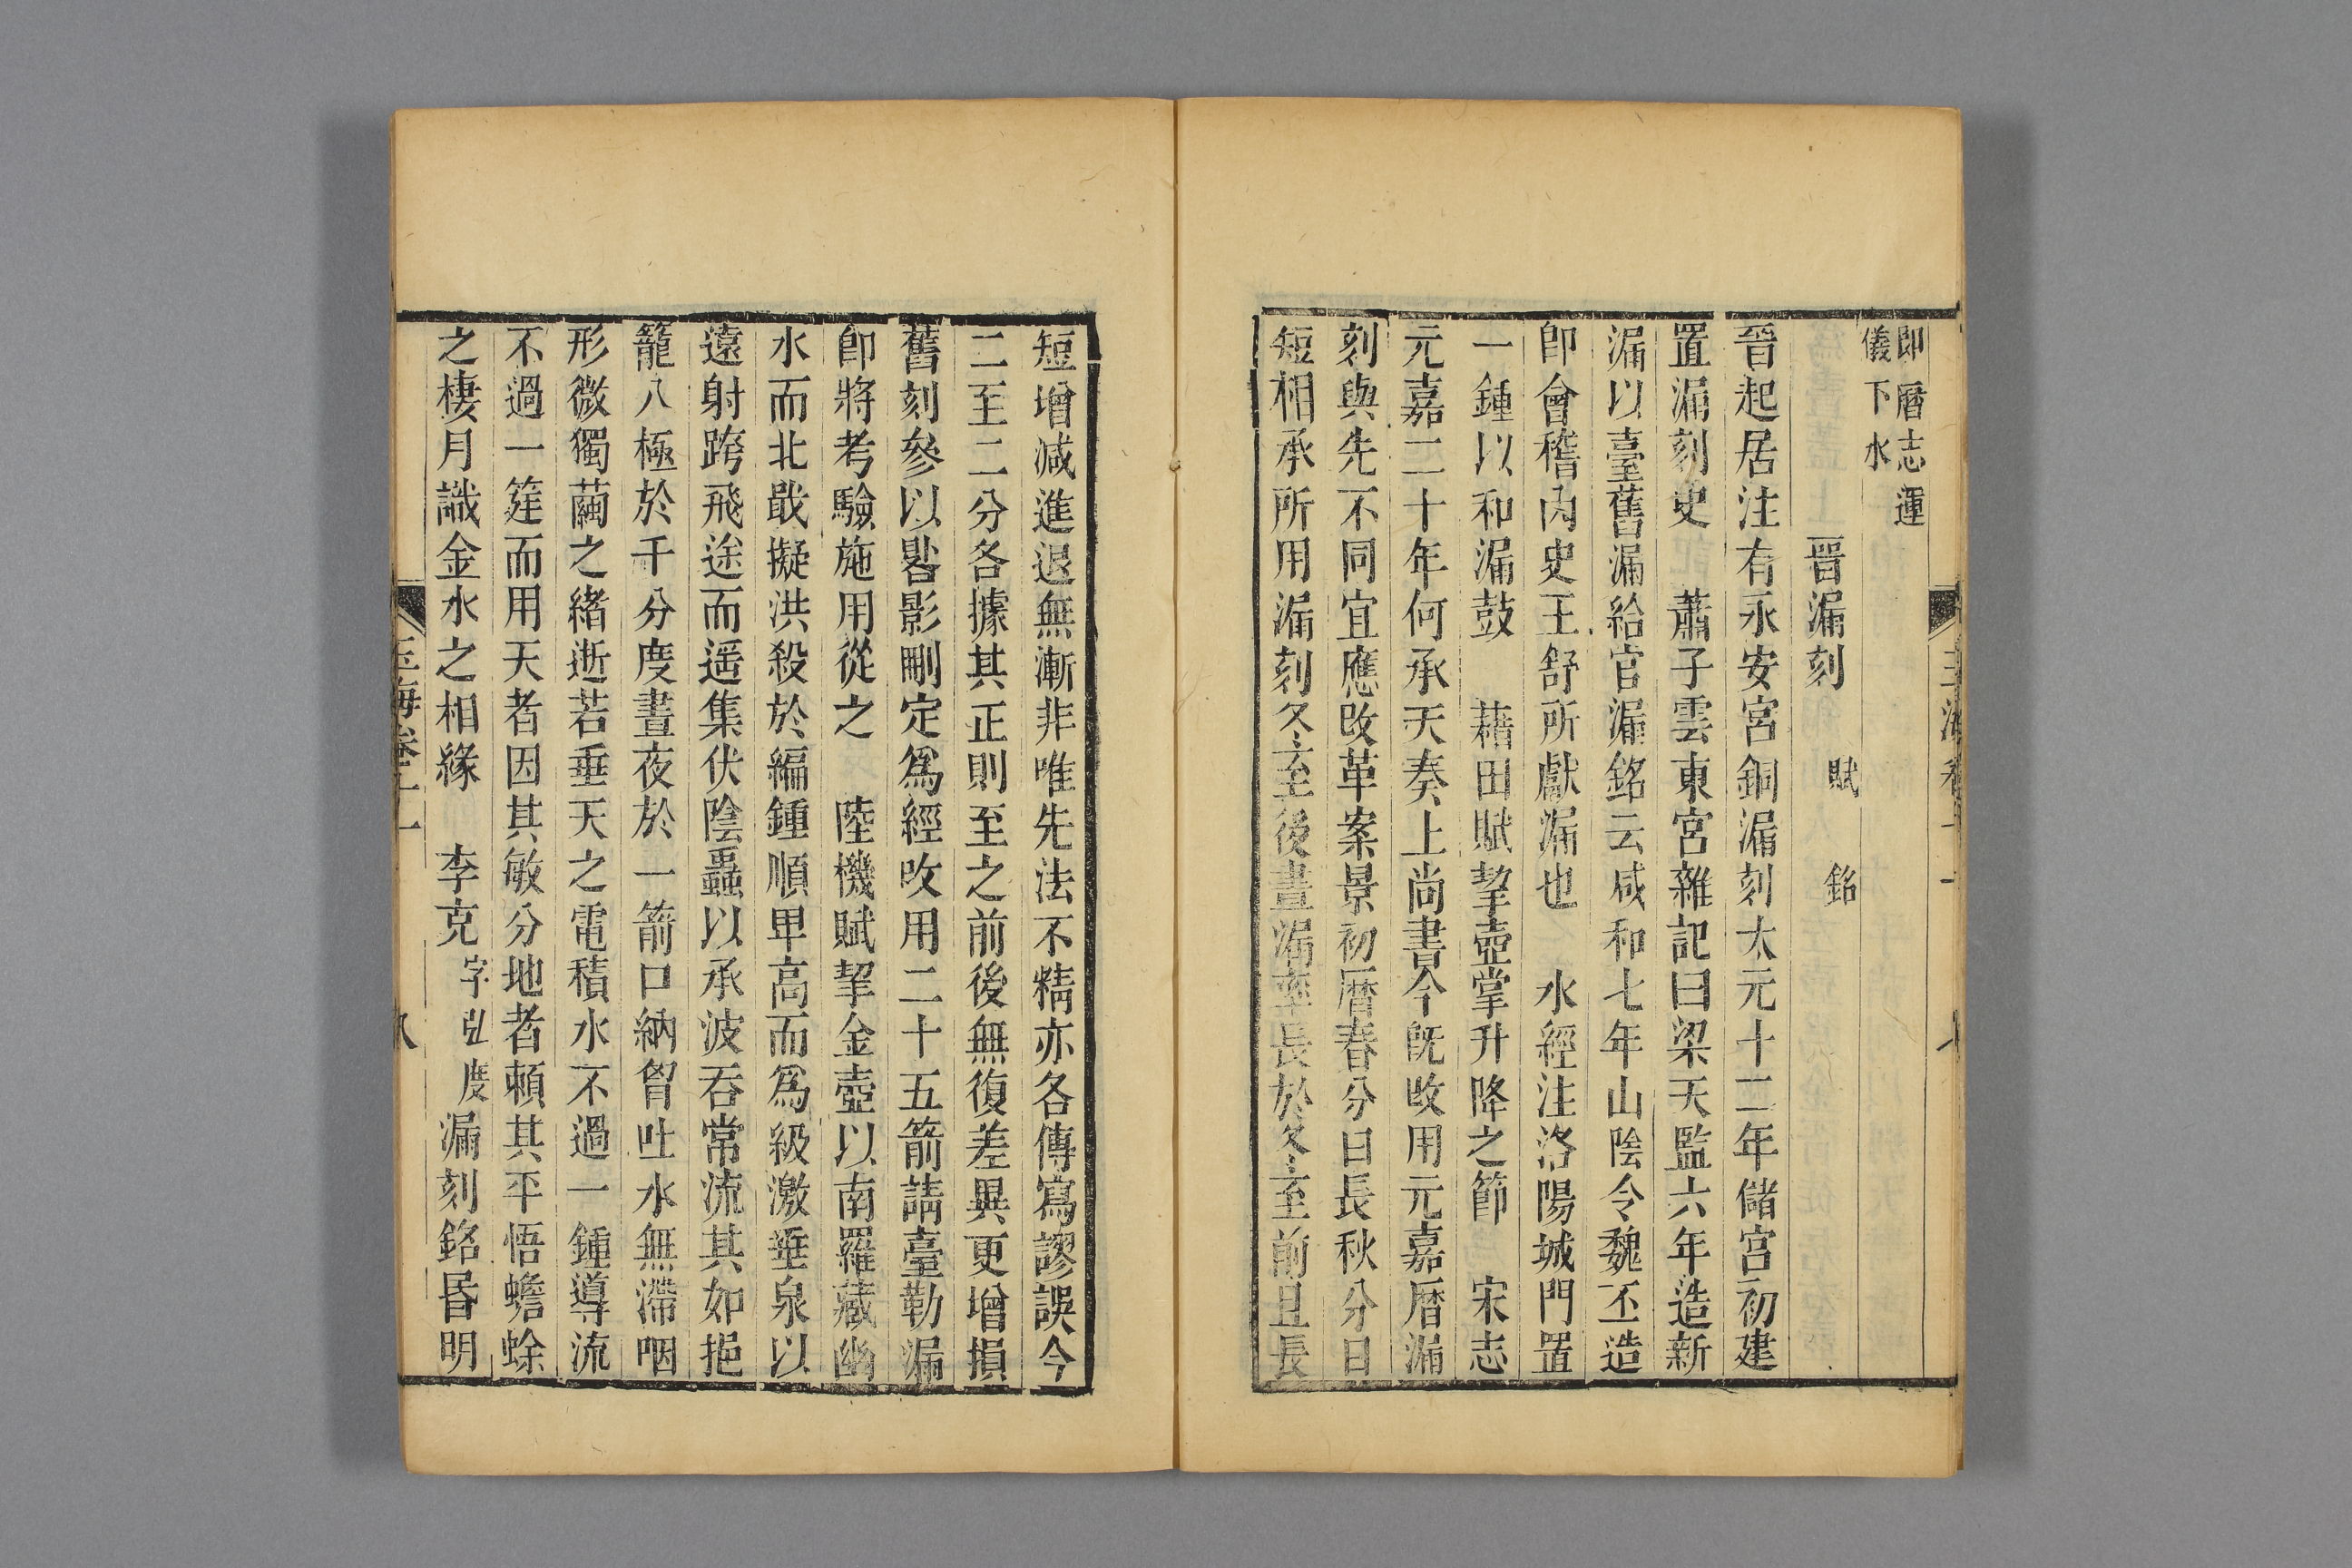 即曆志運
儀下水
晉漏刻　賦　銘
晉起居注有永安宮銅漏刻太元十二年儲宮初建
置漏刻史　蕭子雲東宮雜記曰梁天監六年造新
漏以臺舊漏給官漏銘云咸和七年山陰令魏丕造
卽會稽內史王舒所獻漏也　水經注洛陽城門置
一鍾以和漏鼓　藉田賦挈壺掌升降之節　宋志
元嘉二十年何承天奏上尚書今旣改用元嘉曆漏
刻與先不同宜應改革案景初曆春分日長秋分日
短相承所用漏刻冬至後晝漏率長於冬至前且長
短增減進退無漸非唯先法不精亦各傳寫謬誤今
二至二分各據其正則至之前後無復差異更增損
舊刻參以晷影刪定爲經改用二十五箭請臺勒漏
卽將考驗施用從之　陸機賦挈金壺以南羅藏幽
水而北戢擬洪殺於編鍾順卑高而爲級激垂泉以
遠射跨飛途而遥集伏陰蟲以承波吞常流其如挹
籠八極於千分度晝夜於一箭口納胷吐水無滯咽
形微獨繭之緒逝若垂天之電積水不過一鍾導流
不過一筳而用天者因其敏分地者賴其平悟蟾蜍
之棲月識金水之相緣　李克字弘度漏刻銘昏明
玉海卷十一　八